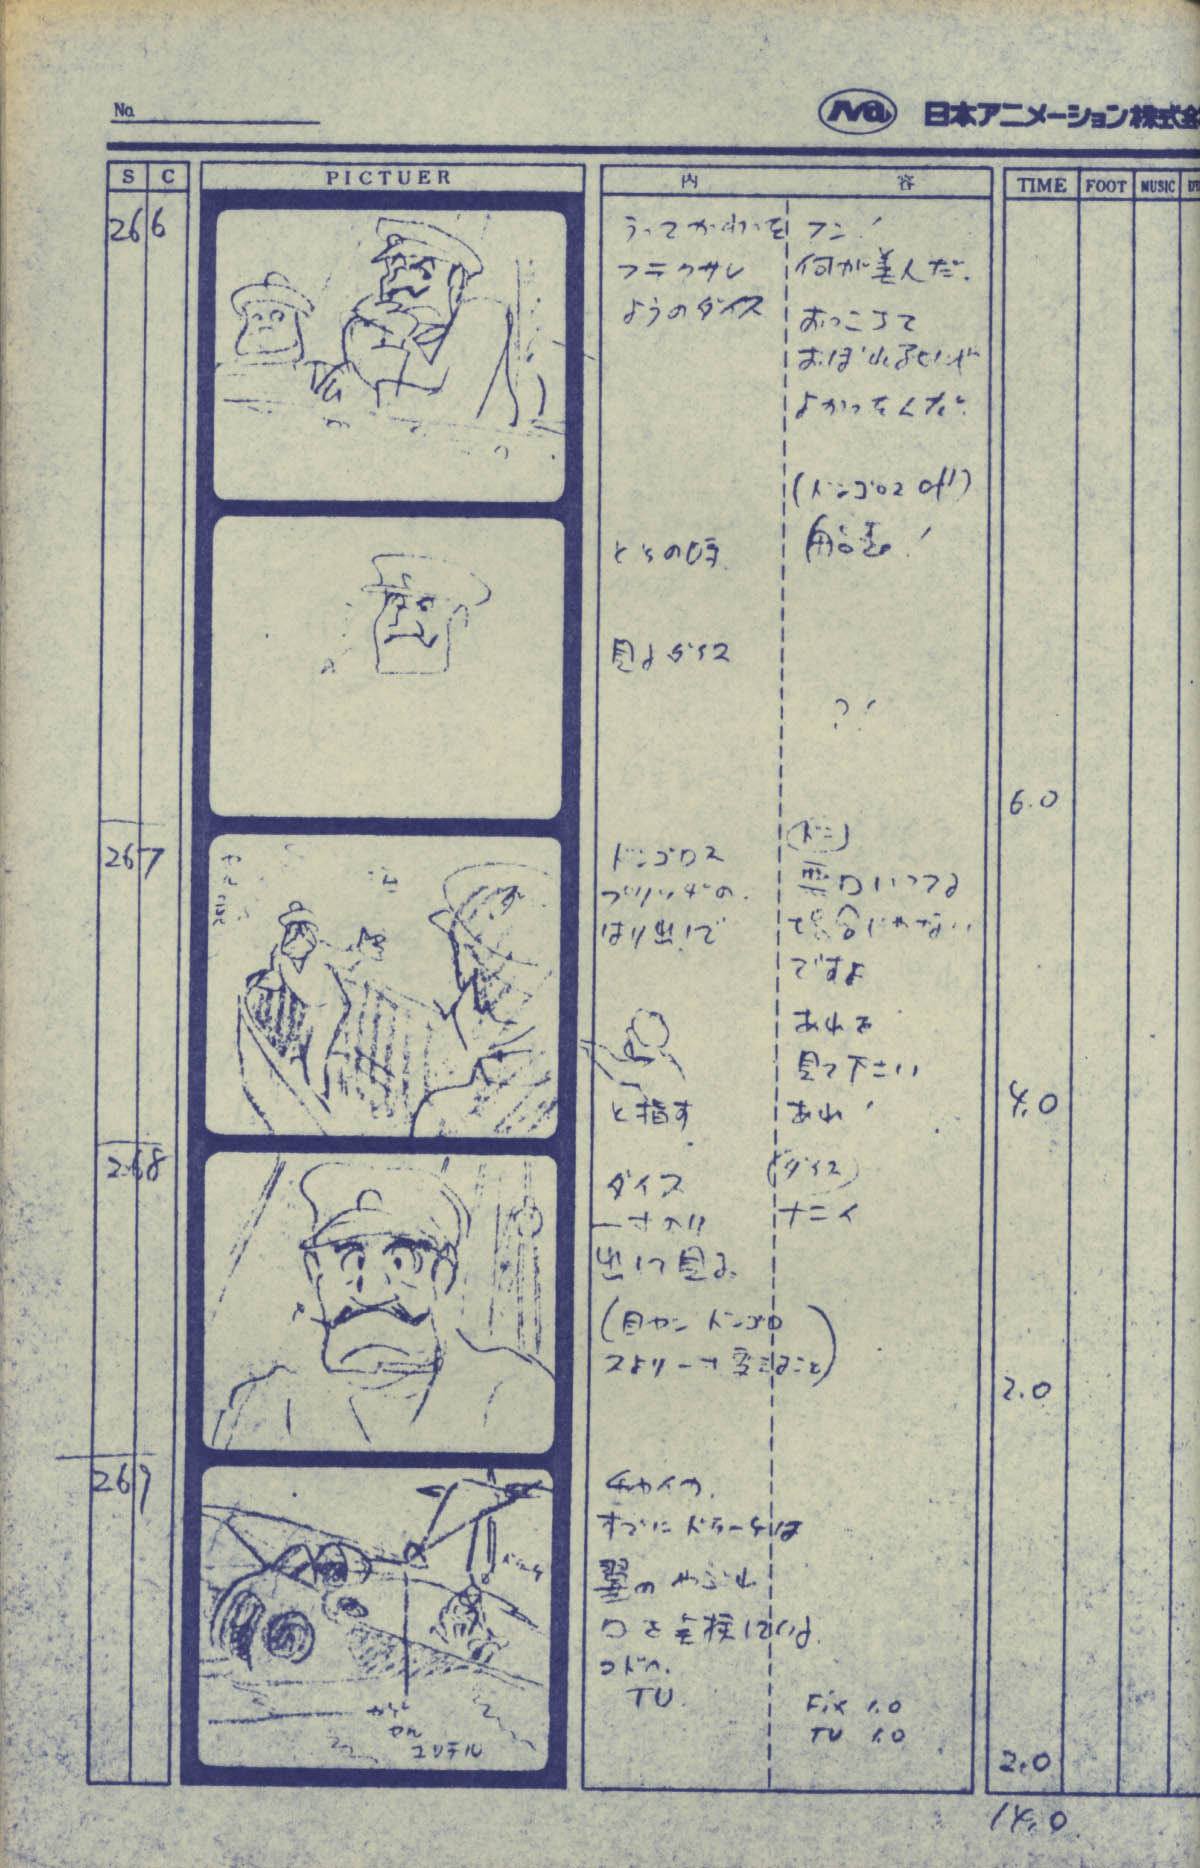 No.
日本アニメーション株式会
S C PICTUER 内 容 TIME FOOT MUSIC
266
うってかわった
フテクサレ
ようのダイス
フン!
何が美人だ.
おっこちて
おぼれちゃ
よかったんだ.
(ドンゴロス off)
とその時.
用意!
見るダイス
?!
6.0
267
ドンゴロス
ブリッヂの.
はり出しで
と指す
(ドン)
悪口いってる
場合じゃない
ですよ
あれを
見て下さい
あれ!
4.0
268
ダイス
出して見る.
(目セン ドンゴロ
スより一寸
(ダイス)
ナニィ
2.0
269
チャイカ.
すでに ドラーケは
翼の やぶれ
口を点検している.
コドヘ.
TU.
Fix 1.0
TU 1.0
ユリテル
2.0
14.0